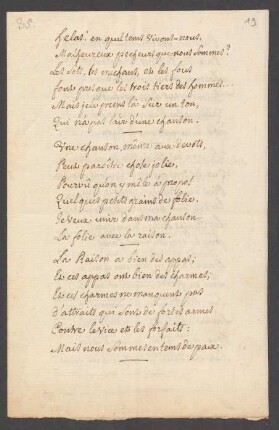 35
19
helas! en quel tems vivons-nous,
Malheureux pecheurs que nous sommes?
Les Sots, les mechans, et les fous
font presque les trois tiers des hommes...
Mais je prens là d'un ton,
Qui n'a pas l'air d'une chanson.
Une chanson, même aux devots,
Peut paroître chose jolie,
Pourvû qu'on y mêle à propos
Quelques petits grains de folie.
Je veux unir dans ma chanson
La folie avec la raison.
La Raison a bien des appas;
Et ces appas ont bien des charmes;
Et ces charmes ne manquent pas
d'attraits qui sont de fortes armes
Contre le vice et les forfaits:
Mais nous sommes en tems de paix.